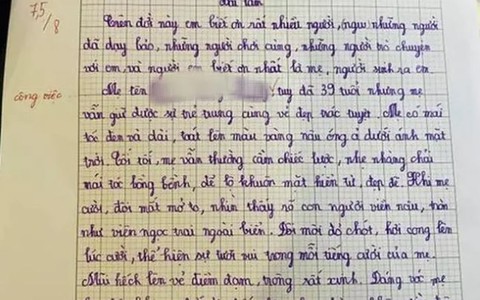 7,5
/8
Trên đời này em biết ơn rất nhiều người, những người
đã dạy bảo, những người chơi cùng, những người trò chuyện
với em, và người em biết ơn nhất là mẹ, người sinh ra em.
Mẹ tên , tuy đã 39 tuổi nhưng mẹ
công việc
vẫn giữ được sự trẻ trung cùng vẻ đẹp tuyệt. Mẹ có mái
tóc đen và dài, toát lên màu vàng nâu óng ả dưới ánh mặt
trời. Tối tối, mẹ vẫn thường cầm chiếc lược, nhẹ nhàng chải
mái tóc bồng bềnh, để lộ khuôn mặt hiền từ, đẹp đẽ. Khi mẹ
cười, đôi mắt mở to, nhìn thấy rõ con ngươi viền nâu, tròn
như viên ngọc trai ngoài biển. Đôi môi đỏ chót, hơi cong lên
lúc cười, thể hiện sự tươi vui trong mỗi tiếng cười của mẹ.
Mũi hếch lên vẻ điềm đạm, trông rất xinh. Dáng vóc mẹ